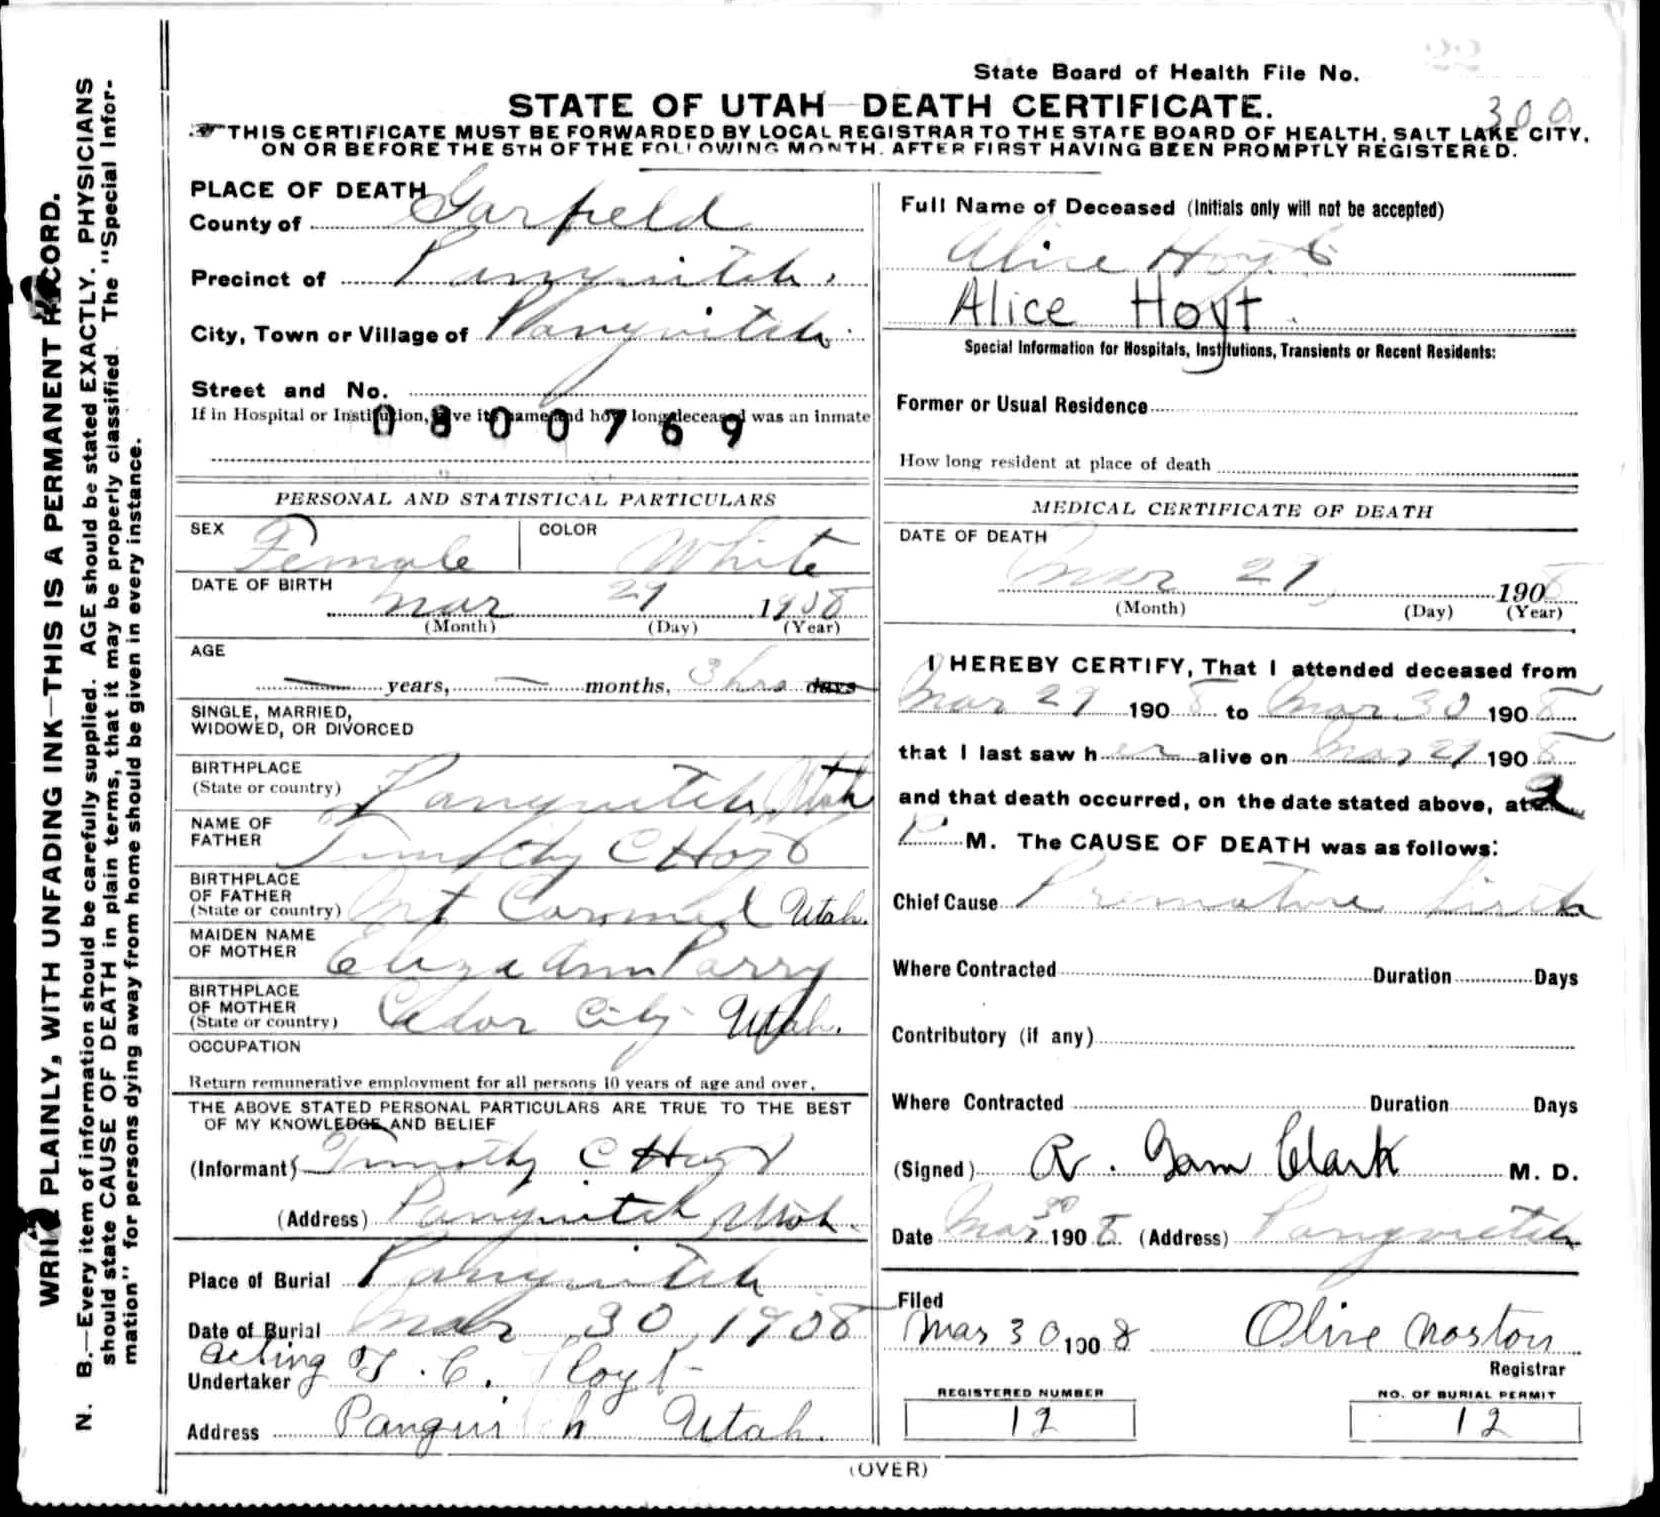 22
State Board of Health File No.
STATE OF UTAH—DEATH CERTIFICATE.
300
THIS CERTIFICATE MUST BE FORWARDED BY LOCAL REGISTRAR TO THE STATE BOARD OF HEALTH, SALT LAKE CITY,
ON OR BEFORE THE 5TH OF THE FOLLOWING MONTH, AFTER FIRST HAVING BEEN PROMPTLY REGISTERED.
WRITE PLAINLY, WITH UNFADING INK—THIS IS A PERMANENT RECORD.
N. B.—Every item of information should be carefully supplied. AGE should be stated EXACTLY. PHYSICIANS
should state CAUSE OF DEATH in plain terms, that it may be properly classified. The "Special Infor-
mation" for persons dying away from home should be given in every instance.
PLACE OF DEATH
County of Garfield
Precinct of Panguitch
City, Town or Village of Panguitch
Street and No.
If in Hospital or Institution, give its name and how long deceased was an inmate
0800769
PERSONAL AND STATISTICAL PARTICULARS
SEX Female COLOR White
DATE OF BIRTH
Mar 29 1908
(Month) (Day) (Year)
AGE
— years, — months, 3 hrs days
SINGLE, MARRIED,
WIDOWED, OR DIVORCED
BIRTHPLACE
(State or country) Panguitch, Utah
NAME OF
FATHER Timothy C Hoyt
BIRTHPLACE
OF FATHER
(State or country) Mt Carmel Utah.
MAIDEN NAME
OF MOTHER Eliza Ann Parry
BIRTHPLACE
OF MOTHER
(State or country) Cedar City Utah.
OCCUPATION
Return remunerative employment for all persons 10 years of age and over.
THE ABOVE STATED PERSONAL PARTICULARS ARE TRUE TO THE BEST
OF MY KNOWLEDGE AND BELIEF
(Informant) Timothy C Hoyt
(Address) Panguitch Utah.
Place of Burial Panguitch
Date of Burial Mar 30, 1908
acting
Undertaker T. C. Hoyt
Address Panguitch Utah.
Full Name of Deceased (Initials only will not be accepted)
Alice Hoyt
Alice Hoyt.
Special Information for Hospitals, Institutions, Transients or Recent Residents:
Former or Usual Residence
How long resident at place of death
MEDICAL CERTIFICATE OF DEATH
DATE OF DEATH
Mar 29, 1908
(Month) (Day) (Year)
I HEREBY CERTIFY, That I attended deceased from
Mar 29 1908 to Mar 30 1908
that I last saw her alive on Mar 29 1908
and that death occurred, on the date stated above, at
P. M. The CAUSE OF DEATH was as follows:
Chief Cause Premature birth
Where Contracted Duration Days
Contributory (if any)
Where Contracted Duration Days
(Signed) R. Garn Clark M. D.
Date Mar 30 1908 (Address) Panguitch
Filed
Mar 30 1908 Olive Norton
Registrar
REGISTERED NUMBER
12
NO. OF BURIAL PERMIT
12
(OVER)